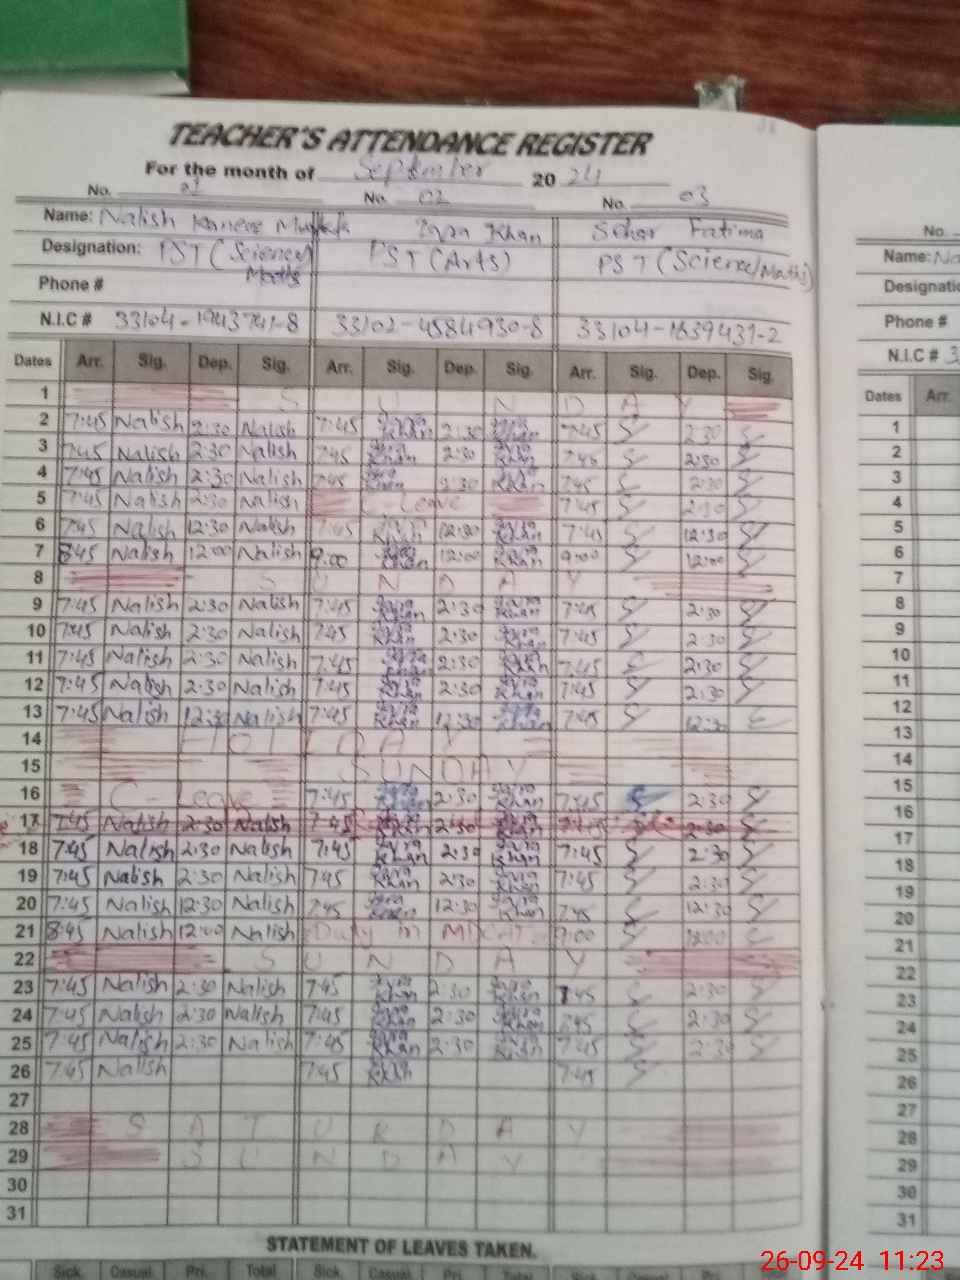 TEACHER'S ATTENDANCE REGISTER
For the month of September 20 24
No. 01 No. 02 No. 03
Name: Nalish Kaneez Khan Sehar Fatima
Designation: PST (Science/ Maths PST (Arts) PST (Science/Maths)
Phone #
N.I.C # 33104-1943741-8 33102-4584930-8 33104-1839431-2
Dates Arr. Sig. Dep. Sig. Arr. Sig. Dep. Sig. Arr. Sig. Dep. Sig.
1 S U N D A Y
2 7:45 Nalish 2:30 Nalish 7:45 Khan 2:30 Khan 7:45 2:30
3 7:45 Nalish 2:30 Nalish 7:45 Khan 2:30 Khan 7:45 2:30
4 7:45 Nalish 2:30 Nalish 7:45 Khan 2:30 Khan 7:45 2:30
5 7:45 Nalish 2:30 Nalish C-Leave 7:45 2:30
6 7:45 Nalish 12:30 Nalish 7:45 Khan 12:30 Khan 7:45 12:30
7 8:45 Nalish 12:00 Nalish 9:00 Khan 12:00 Khan 9:00 12:00
8 S U N D A Y
9 7:45 Nalish 2:30 Nalish 7:45 Khan 2:30 Khan 7:45 2:30
10 7:45 Nalish 2:30 Nalish 7:45 Khan 2:30 Khan 7:45 2:30
11 7:45 Nalish 2:30 Nalish 7:45 Khan 2:30 Khan 7:45 2:30
12 7:45 Nalish 2:30 Nalish 7:45 Khan 2:30 Khan 7:45 2:30
13 7:45 Nalish 12:30 Nalish 7:45 Khan 12:30 Khan 7:45 12:30
14 HOLIDAY
15 SUNDAY
16 C-Leave 7:45 Khan 2:30 Khan 7:45 2:30
17 7:45 Nalish 2:30 Nalish 7:45 Khan 2:30 Khan 7:45 2:30
18 7:45 Nalish 2:30 Nalish 7:45 Khan 2:30 Khan 7:45 2:30
19 7:45 Nalish 2:30 Nalish 7:45 Khan 2:30 Khan 7:45 2:30
20 7:45 Nalish 12:30 Nalish 7:45 Khan 12:30 Khan 7:45 12:30
21 8:45 Nalish 12:00 Nalish Duty in MDCAT 9:00 12:00
22 S U N D A Y
23 7:45 Nalish 2:30 Nalish 7:45 Khan 2:30 Khan 7:45 2:30
24 7:45 Nalish 2:30 Nalish 7:45 Khan 2:30 Khan 7:45 2:30
25 7:45 Nalish 2:30 Nalish 7:45 Khan 2:30 Khan 7:45 2:30
26 7:45 Nalish 7:45 Khan 7:45
27
28 S A T U R D A Y
29 S U N D A Y
30
31
STATEMENT OF LEAVES TAKEN.
Sick Casual Pri. Total Sick Casual Pri. Total Sick
No.
Name: Na
Designatio
Phone #
N.I.C # 3
Dates Arr.
1
2
3
4
5
6
7
8
9
10
11
12
13
14
15
16
17
18
19
20
21
22
23
24
25
26
27
28
29
30
31
26-09-24 11:23